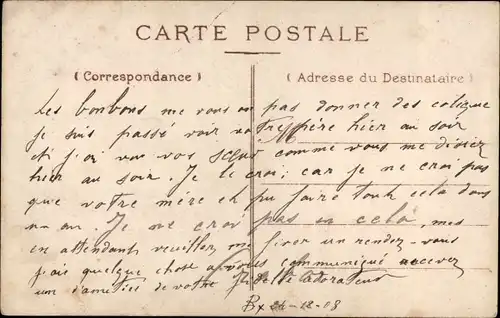 CARTE POSTALE
( Correspondance )
( Adresse du Destinataire )
Les bonbons me vous on pas donner des colique
je suis passé voir votre père hier au soir
et j'ai vos sœurs comme vous me disiez
hier au soir. Je le croi; car je ne croi pas
que votre mère et pu faire tout cela dans
un an. Je ne croi pas a cela, mes
en attendant veuillez me fixer un rendez-vous
j'ais quelque chose a vous communiqué recevez
un d'amitiés de votre fidelle adorateur
Bx 24-12-18